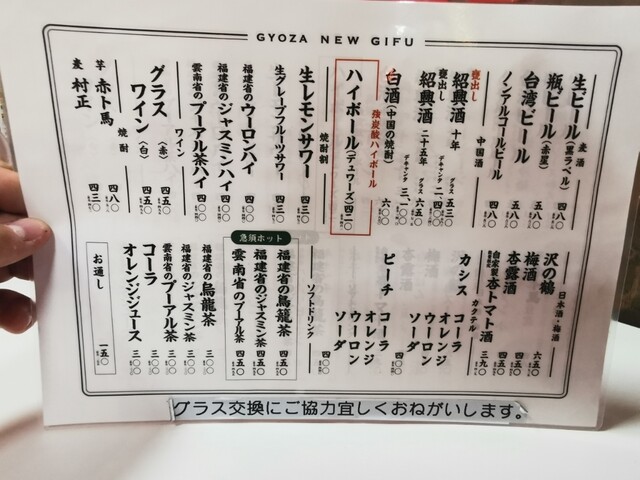 GYOZA NEW GIFU
麦酒
生ビール(黒ラベル) 四八〇
瓶ビール(赤星) 五八〇
台湾ビール 五八〇
ノンアルコールビール 四八〇
中国酒
甕出し
紹興酒 十年 グラス 五三〇
デキャンタ 二、一〇〇
甕出し
紹興酒 二十五年 グラス 六五〇
デキャンタ 三、一〇〇
白酒(中国の焼酎) 六〇〇
強炭酸ハイボール
ハイボール(デュワーズ) 四二〇
焼酎割
生レモンサワー 四三〇
生グレープフルーツサワー 四三〇
福建省のウーロンハイ 四〇〇
福建省のジャスミンハイ 四〇〇
雲南省のプーアル茶ハイ 四〇〇
ワイン
グラスワイン (赤) 四五〇
(白) 四五〇
焼酎
芋 赤ト馬 四八〇
麦 村正 四三〇
日本酒・梅酒
沢の鶴 六五〇
梅酒 四五〇
杏露酒 四五〇
自家製 杏トマト酒 三九〇
カクテル
カシス コーラ
オレンジ
ウーロン
ソーダ 四〇〇
ピーチ コーラ
オレンジ
ウーロン
ソーダ 四〇〇
ソフトドリンク
急須ホット
福建省の烏龍茶 四五〇
福建省のジャスミン茶 四五〇
雲南省のプーアル茶 四五〇
福建省の烏龍茶 三〇〇
福建省のジャスミン茶 三〇〇
雲南省のプーアル茶 三〇〇
コーラ 三〇〇
オレンジジュース 三〇〇
お通し 一五〇
グラス交換にご協力宜しくおねがいします。